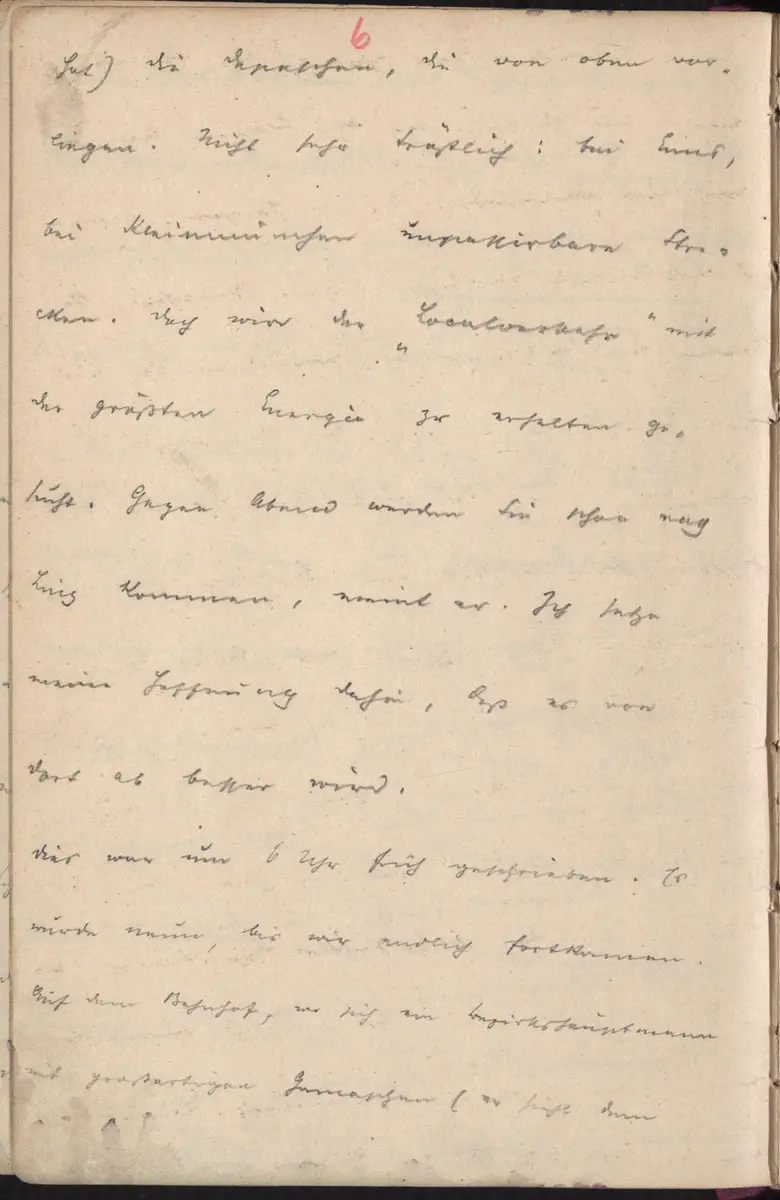 6
hat) die Depeschen, die von oben vor-
liegen. Nicht sehr tröstlich: bei Enns,
bei Kleinmünchen unpassirbare Stre-
cken. Doch wird der „Localverkehr“ mit
der größten Energie zu erhalten ge-
sucht. Gegen Abend werden Sie schon nach
Linz kommen, meint er. Ich setze
meine Hoffnung dahin, daß es von
dort ab besser wird.
Dies war um 6 Uhr früh geschrieben. Es
wurde neun, bis wir endlich fortkamen.
Auf dem Bahnhof, wo sich ein Bezirkshauptmann
mit großartigen Gamaschen (er sieht dem